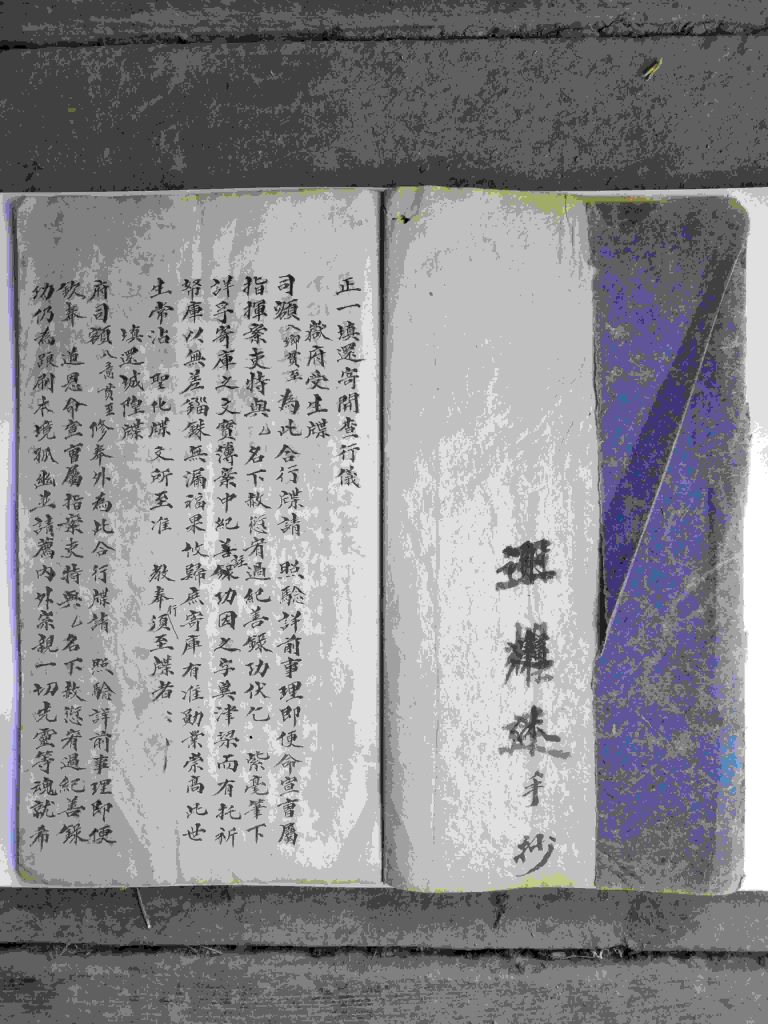 手抄
正一填還寄開查行儀
歘府受生牒
司 額 入鄉貫至 為此合行牒請 照驗詳前事理即便命宣曹屬
指揮案吏特與乙名下赦愆宥過紀善錄功伏乞 紫毫筆下
詳孚寄庫之文寶傳案中紀善錄功因之字冀津梁而有托祈
帑庫以無差錙銖無漏福果攸歸庶寄庫有准勛業崇高此世
生常沾 聖化牒文所至准 教奉行須至牒者
填還城隍牒
府司 額 入意貫至 修奉外為此合行牒請 照驗詳前事理即便
欽奉 道恩命宣曹屬指案吏特與乙名下赦愆宥過紀善錄
功仍為跟刷本境孤幽並請薦內外宗親一切先靈等魂就希